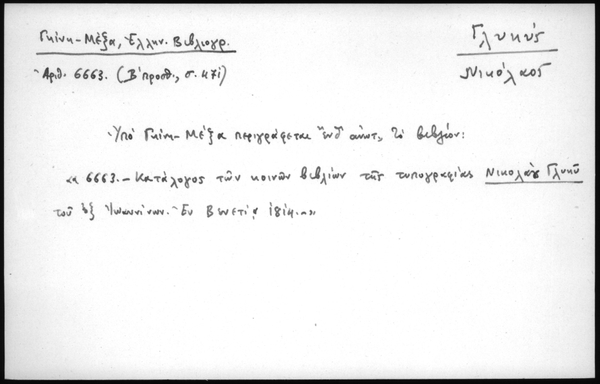 Γκίνη-Μέξα, Ἑλλην. Βιβλιογρ.
Γλυκύς
Ἀριθ. 6663. (Β΄ προσθ., σ. 471)
Νικόλαος
Ὑπό Γκίνη-Μέξα περιγράφεται ἔνθ' ἀνωτ., τό βιβλίον:
« 6663.- Κατάλογος τῶν κοινῶν βιβλίων τῆς τυπογραφίας Νικολάου Γλυκῦ
τοῦ ἐξ Ἰωαννίνων. Ἐν Βενετίᾳ 1814.-»